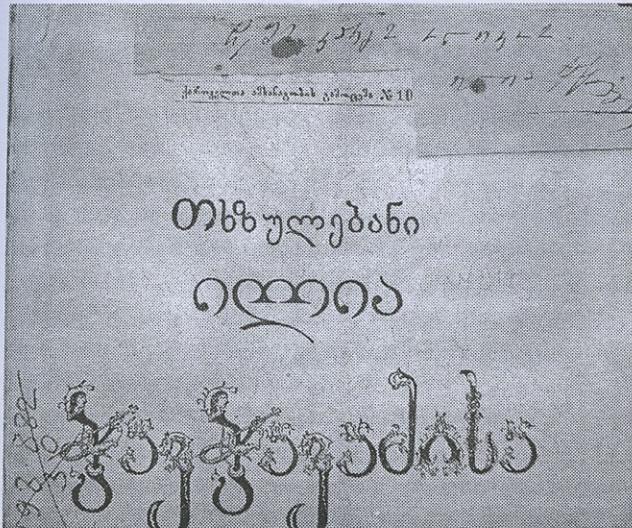 ქართველთა ამხანაგობის გამოცემა № 10
თხზულებანი
ილია
ჭავჭავაძისა